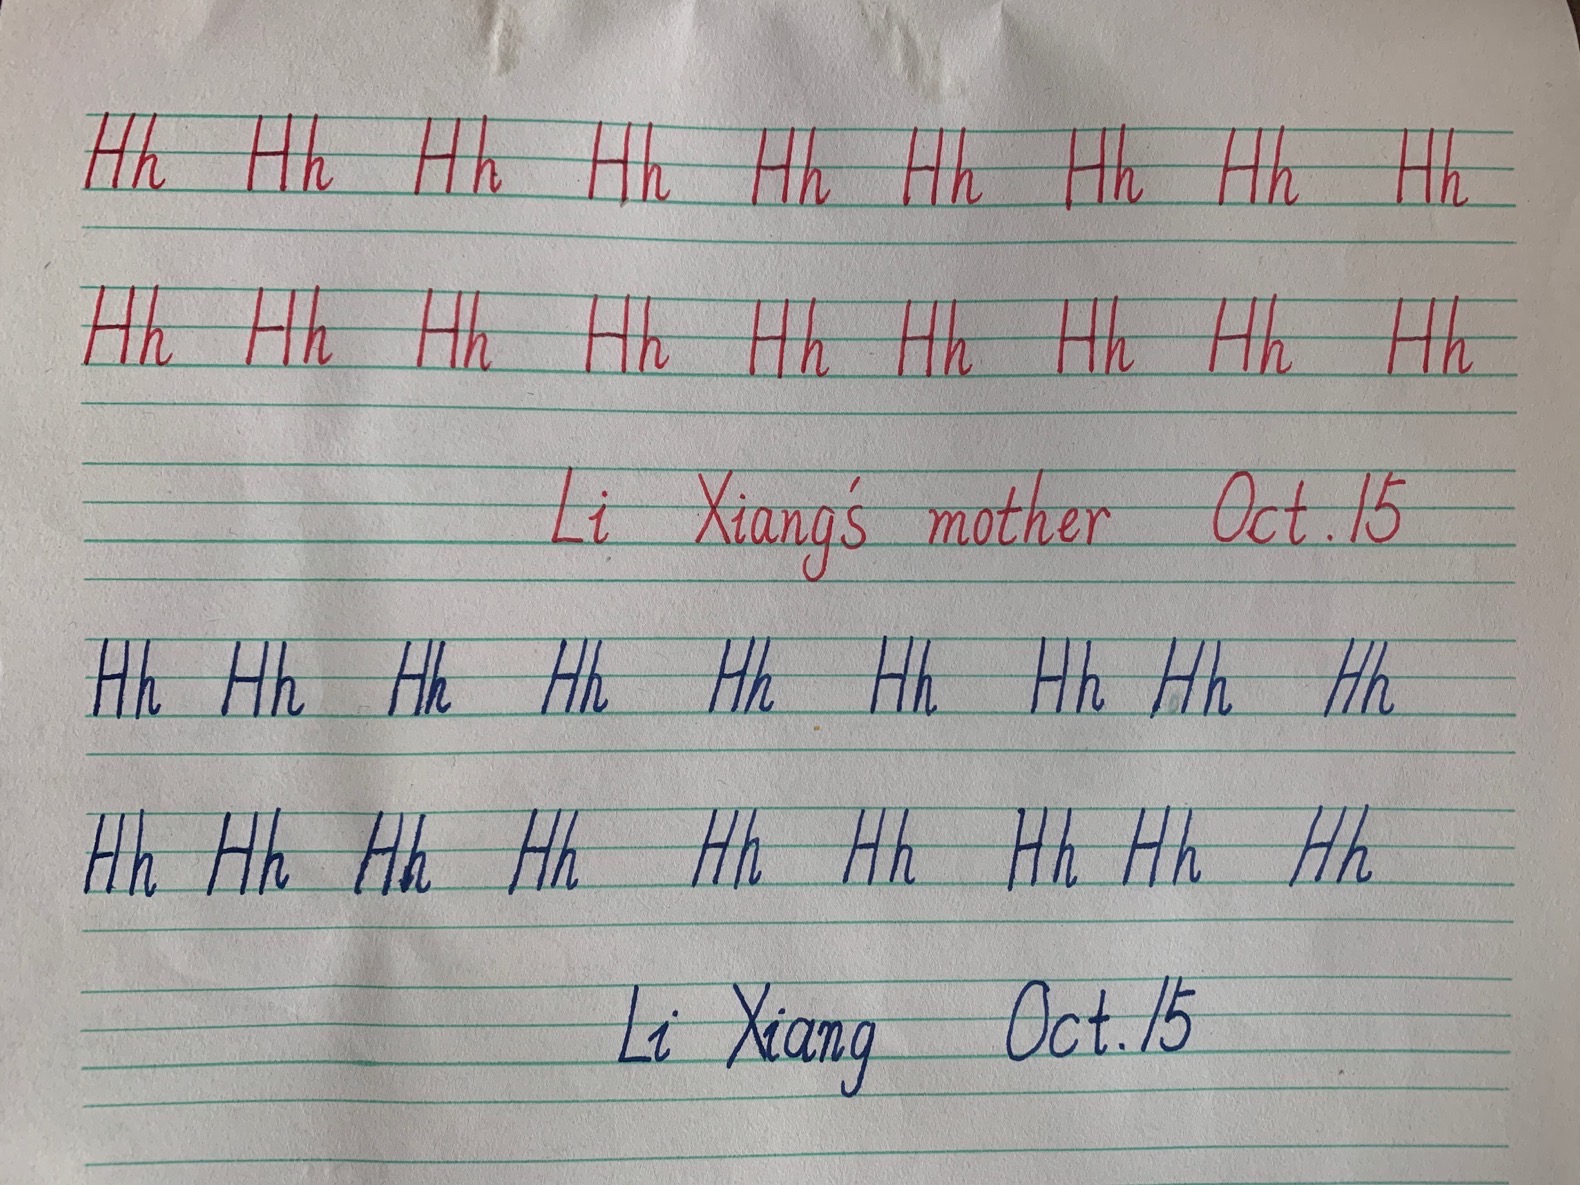 Hh Hh Hh Hh Hh Hh Hh Hh Hh
Hh Hh Hh Hh Hh Hh Hh Hh Hh
Li Xiang's mother Oct. 15
Hh Hh Hh Hh Hh Hh Hh Hh Hh
Hh Hh Hh Hh Hh Hh Hh Hh Hh
Li Xiang Oct. 15